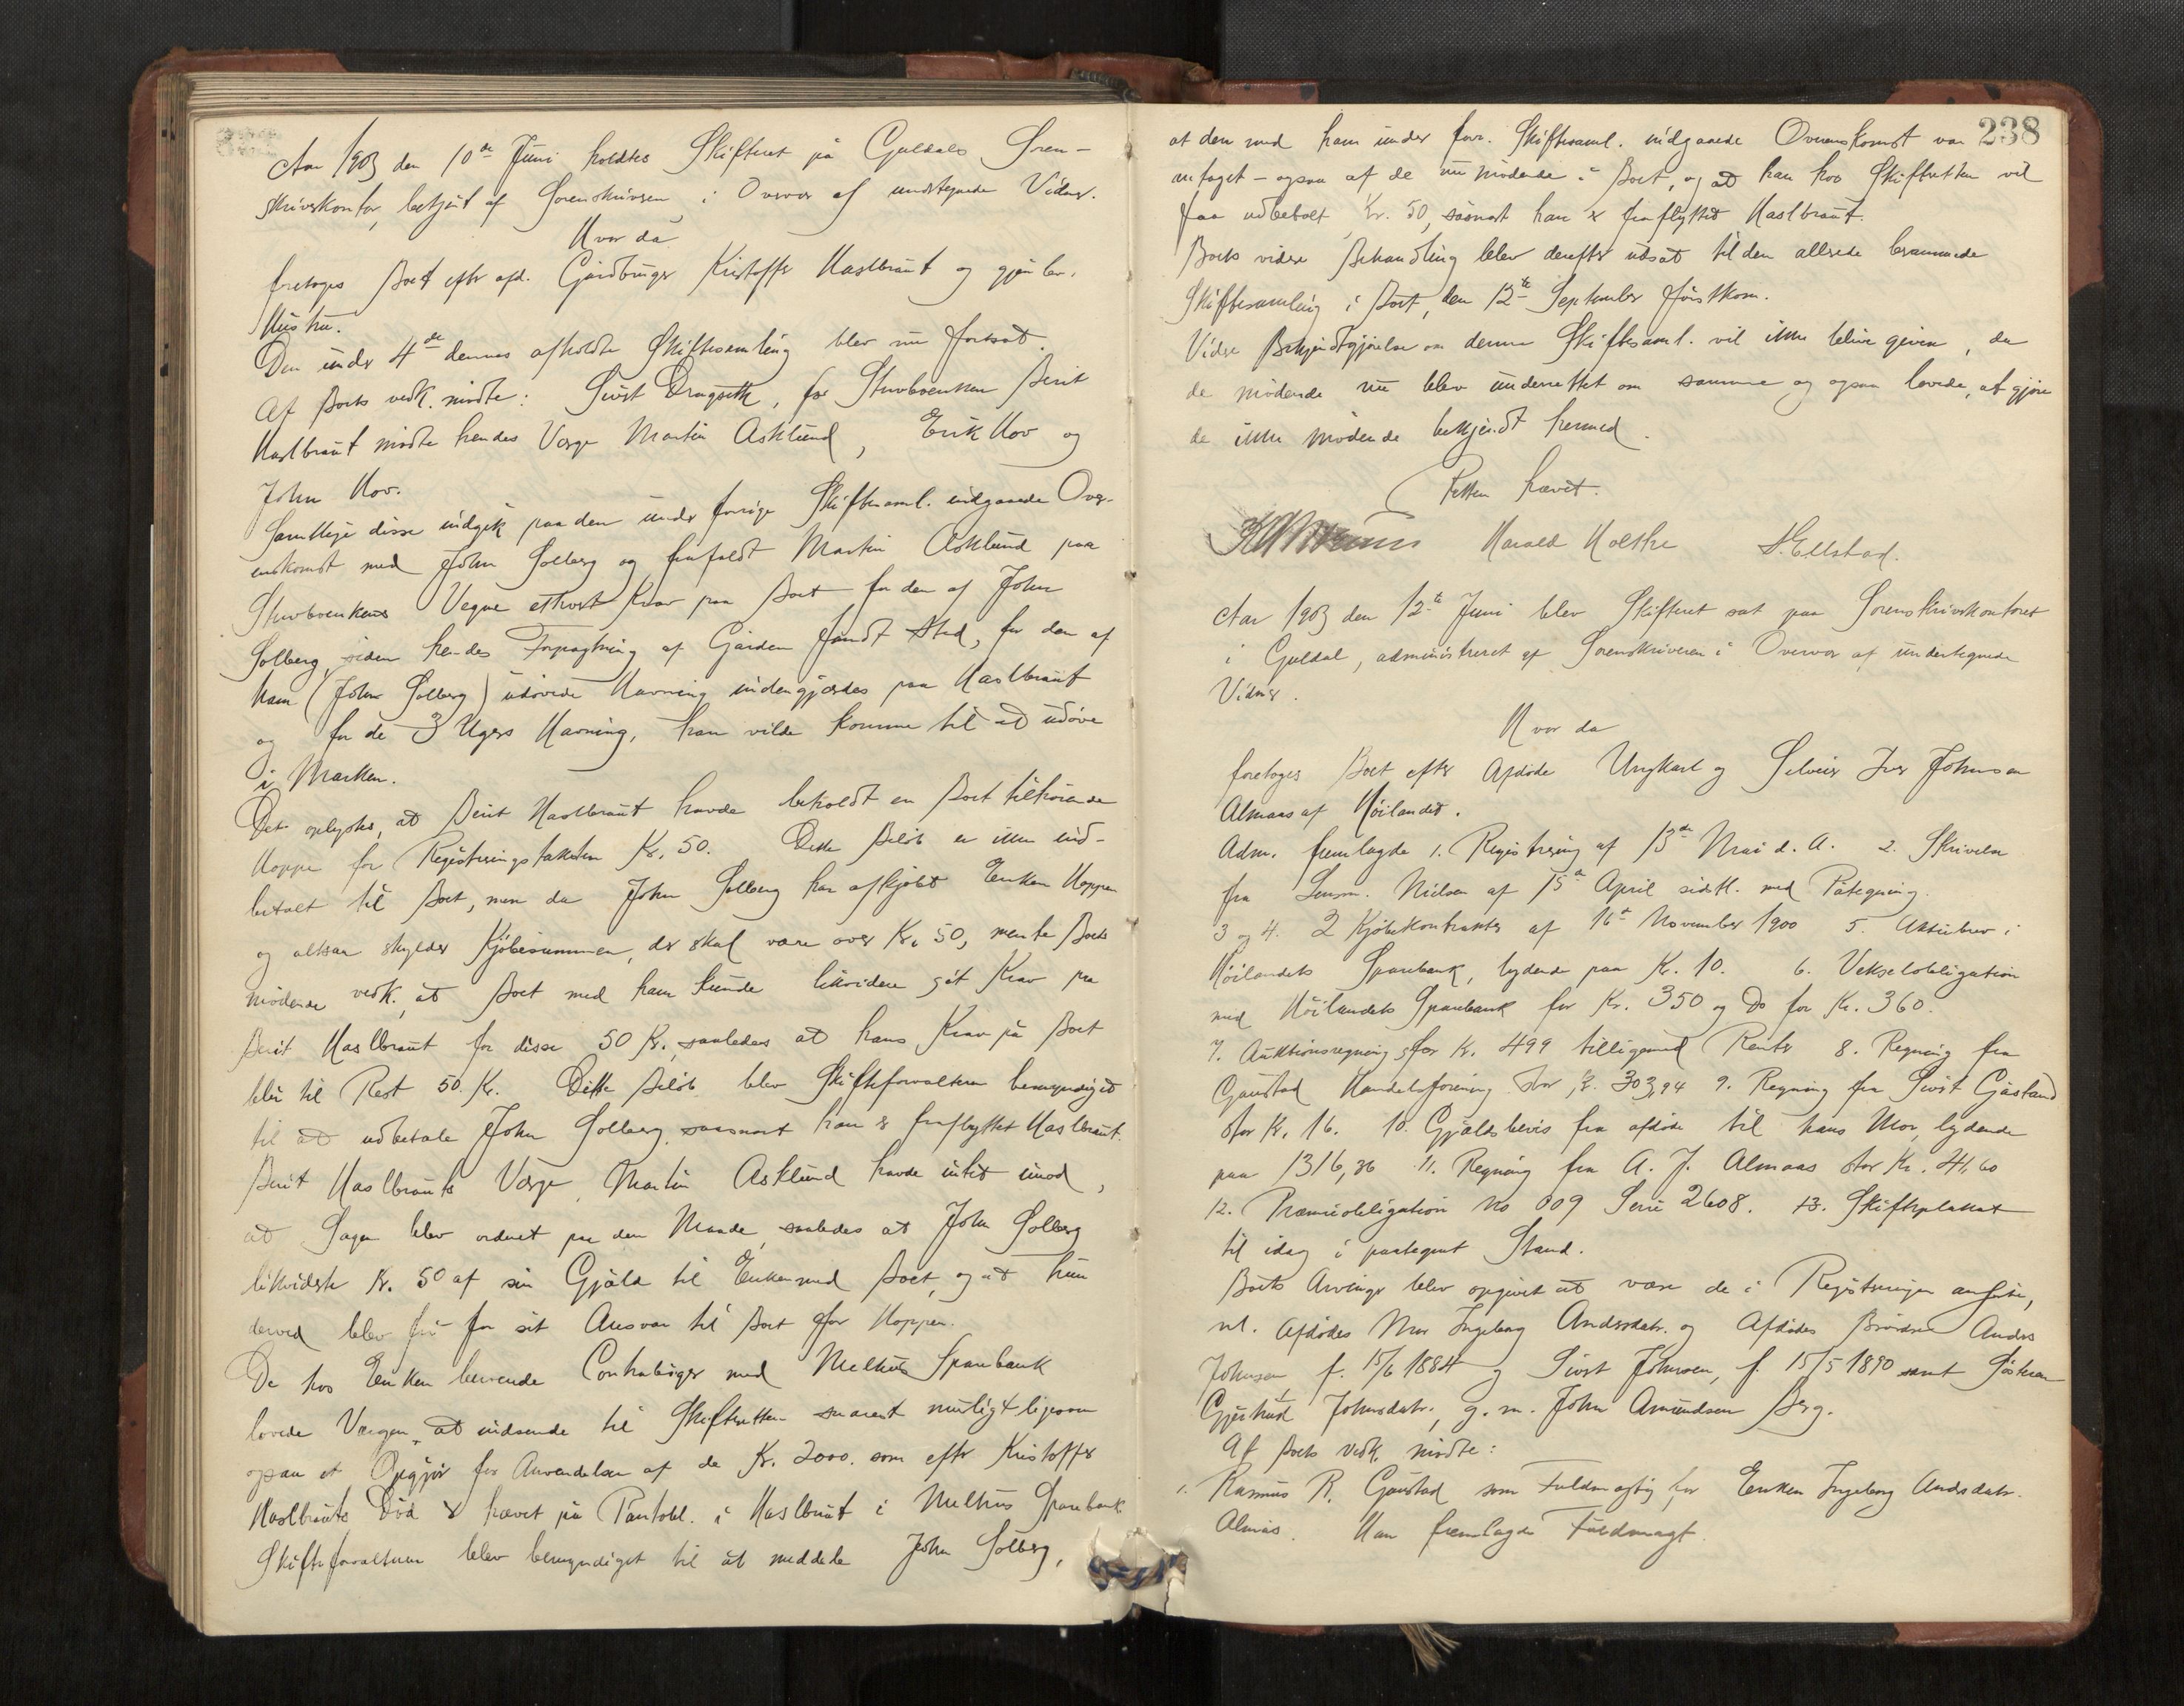 Aar 1903 den 10de Juni holdtes Skifteret på Guldals Soren-
skriverkontor, betjent af Sorenskriveren i Overvær af undertegnede Vidner.
Hvor da
foretoges Boet efter afd. Gårdbruger Kristoffer Haslbraut og gjenlev.
Hustru.
Den under 4de dennes afholdte Skiftesamling blev nu fortsat.
Af Boets vedk. mødte: Sivert Dragseth, for Stervboenken Berit
Haslbraut mødte hendes Verge Martin Asklund, Erik Hov og
John Hov.
Samtlige disse indgik paa den under forrige Skiftesaml. indgaaede Over-
enskomst med John Solberg og frafaldt Martin Asklund paa
Stervboenkens Vegne ethvert Krav paa Boet for den af John
Solberg, siden hendes Forpagtning af Gården fandt Sted, for den af
ham (John Solberg) udøvede Havning indengjærdes paa Haslbraut
og for de 3 Ugers Havning, han vilde komme til at udøve
i Marken.
Det oplystes, at Berit Haslbraut havde beholdt en Boet tilhørende
Hoppe for Registreringstaksten Kr. 50. Dette Beløb er ikke ind-
betalt til Boet, men da John Solberg har afkjøbt Enken Hoppen
og altsaa skylder Kjøbesummen, der skal være over Kr. 50, mente Boets
mødende vedk. at Boet med ham kunde likvidere sit Krav paa
Berit Haslbraut for disse 50 Kr., saaledes at hans Krav på Boet
blir til Rest 50 Kr. Dette Beløb blev Skifteforvalteren bemyndiget
til at udbetale John Solberg, saasnart han er fraflyttet Haslbraut.
Berit Haslbrauts Verge, Martin Asklund havde intet imod,
at Sagen blev ordnet paa den Maade, saaledes at John Solberg
likviderte Kr. 50 af sin Gjæld til Enken med Boet, og at hun
derved blev fri for sit Ansvar til Boet for Hoppen.
De hos Enken beroende Contrabøger med Melhus Sparebank
lovede Vergen at indsende til Skifteretten snarest muligt ligesom
ogsaa et Opgjør for Anvendelsen af de Kr. 2000. som efter Kristoffer
Haslbrauts Død er hævet på Pantobl. i Haslbraut i Melhus Sparebank
Skifteforvalteren blev bemyndiget til at meddele John Solberg,
238
at den med ham under forr. Skiftesaml. indgaaede Overenskomst var
antaget – ogsaa af de nu mødende i Boet, og at han hos Skifteretten vil
faa udbetalt Kr. 50, såsnart han er fraflyttet Haslbraut.
Boets videre Behandling blev derefter udsat til den allerede berammede
Skiftesamling i Boet, den 12te September førstkom.
Videre Bekjendtgjørelse om denne Skiftesaml. vil ikke blive given, da
de mødende nu blev underrettet om samme og ogsaa lovede, at gjøre
de ikke mødende bekjendt hermed.
Retten hævet.
Harald Moltke H. Ellstad.
Aar 1903 den 12te Juni blev Skifteret sat paa Sorenskriverkontoret
i Guldal, administreret af Sorenskriveren i Overvær af undertegnede
Vidner.
Hvor da
foretoges Boet efter Afdøde Ungkarl og Selveier Iver Johnsen
Almaas af Høilandet.
Adm. fremlagde 1. Registrering af 13de Mai d. A. 2. Skrivelse
fra Lensm. Nielsen af 15de April sidstl. med Påtegning.
3 og 4. 2 Kjøbekontrakter af 16de November 1900 5. Aktiebrev i
Høilandets Sparebank, lydende paa Kr. 10. 6. Vekselobligation
med Høilandets Sparebank for Kr. 350 og Do for Kr. 360.
7. Auktionsregning stor Kr. 499 tilligemed Renter 8. Regning fra
Gaustad Handelsforening stor Kr. 303,94 9. Regning fra Sivert Gåstand
stor Kr. 16. 10. Gjældsbevis fra afdøde til hans Mor, lydende
paa 1316,36 11. Regning fra A. J. Almaas stor Kr. 41,60
12. Præmieobligation No 009 Serie 2608. 13. Skifteplakat
til idag i paategnet Stand.
Boets Arvinger blev opgivet at være de i Registreringen anførte,
nl. Afdødes Mor Ingeborg Andersdatr. og Afdødes Brødre Anders
Johnsen f. 15/6 1884 og Sivert Johnsen, f. 15/5 1890 samt Søsteren
Gjertrud Johnsdatr., g. m. John Amundsen Berg.
Af Boets vedk. mødte:
1. Rasmus R. Gaustad som Fuldmægtig for Enken Ingeborg Andersdatr.
Almås. Han fremlagde Fuldmagt.